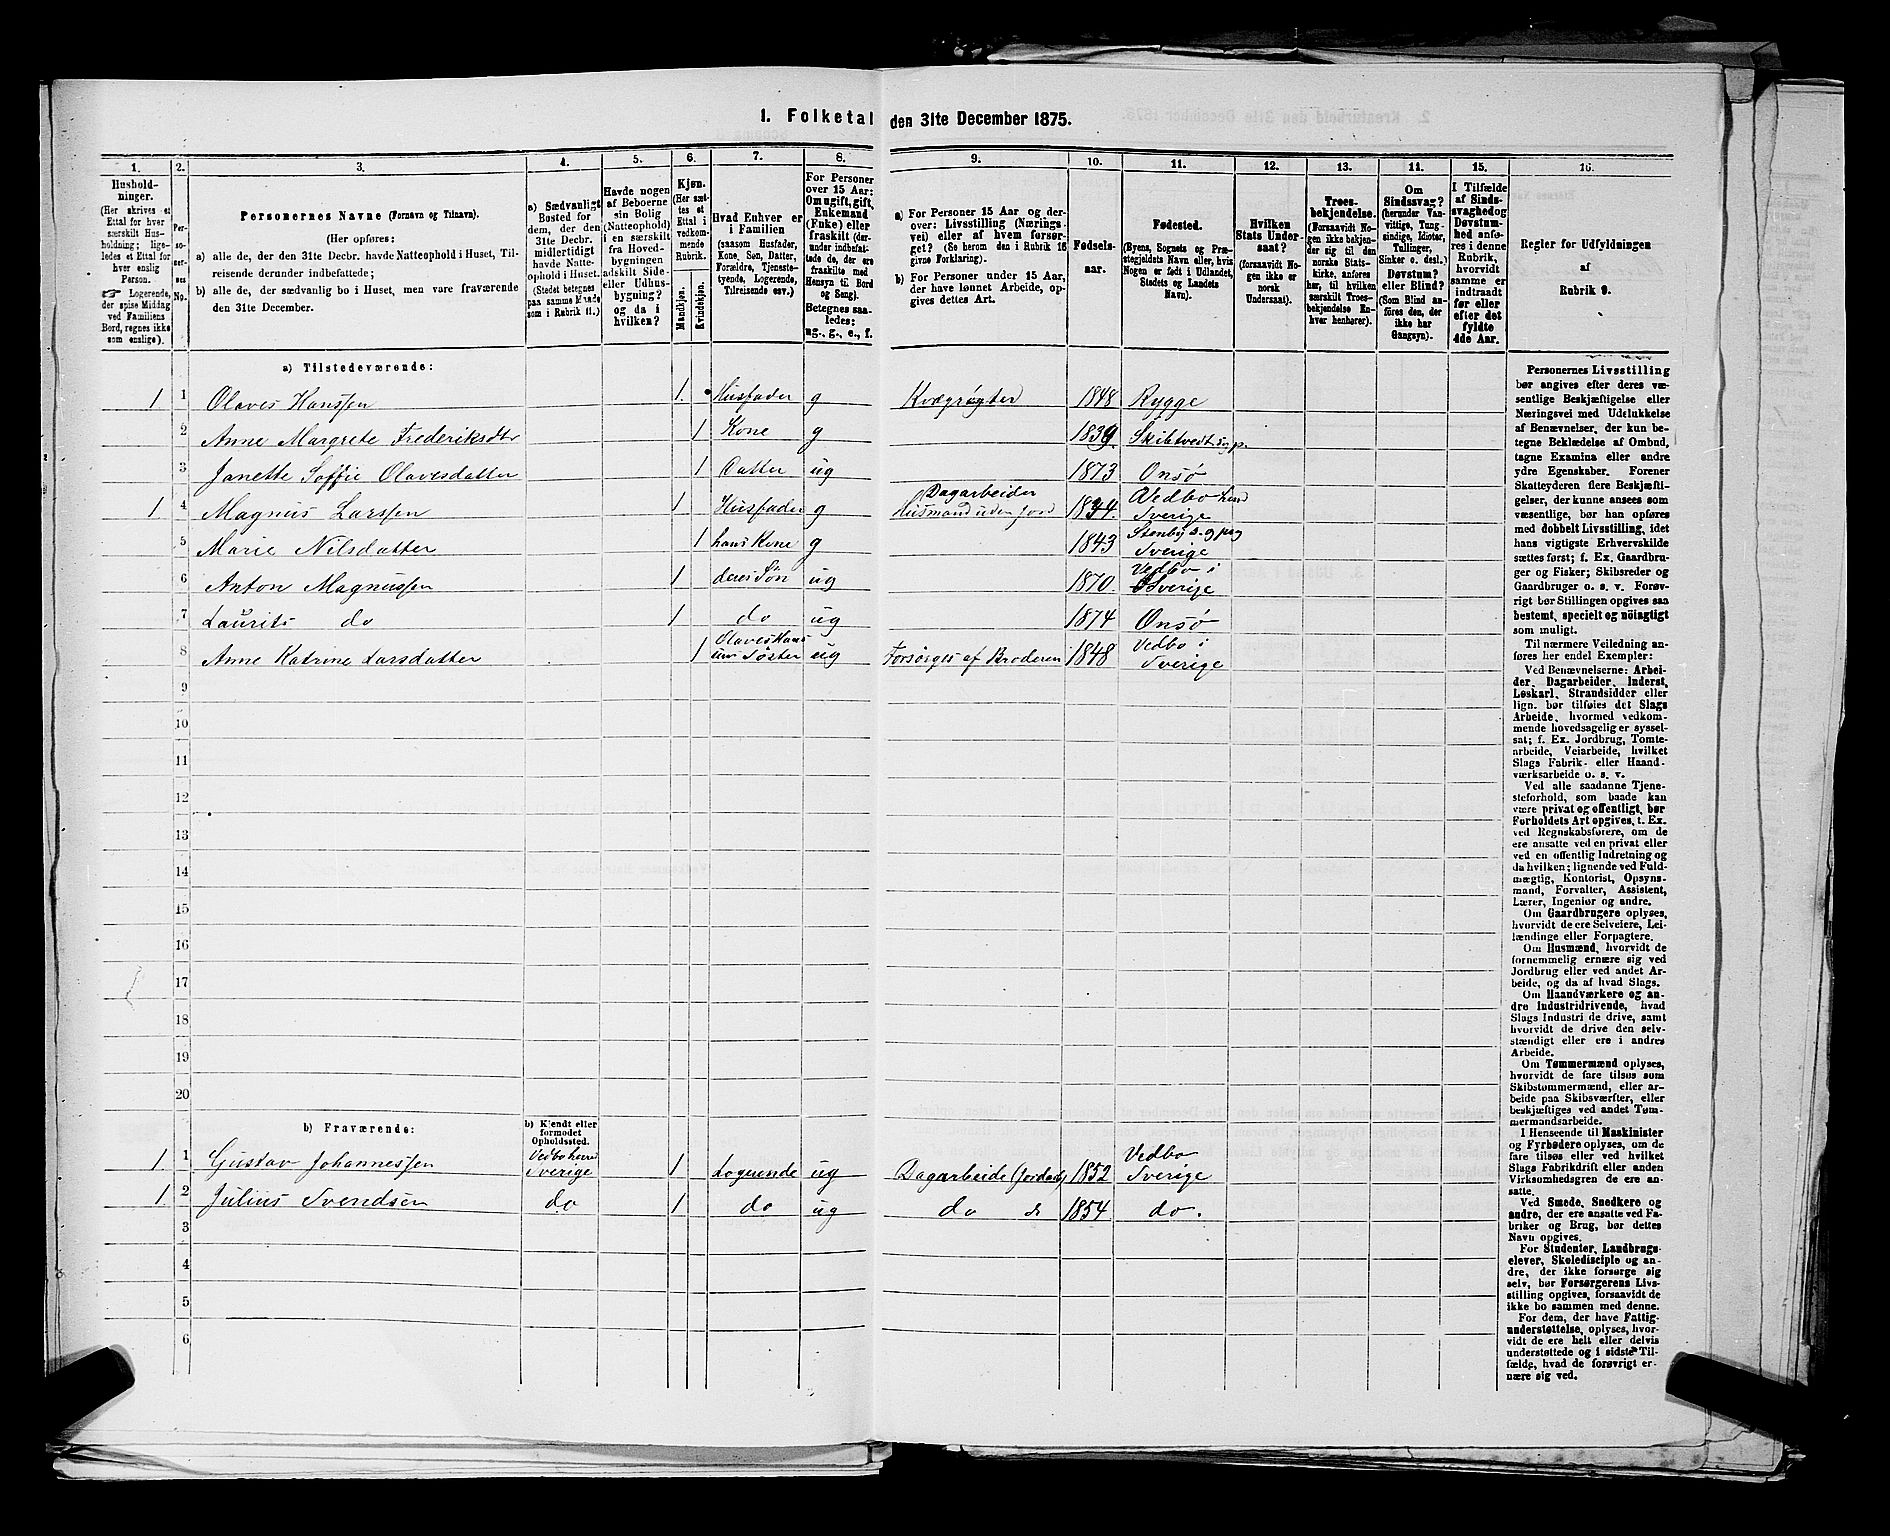 1. Folketal den 31te December 1875.
1. 2. 3. 4. 5. 6. 7. 8. 9. 10. 11. 12. 13. 11. 15. 16.
Hushold-
ninger.
(Her skrives et
Ettal for hver
særskilt Hus-
holdning; lige-
ledes et Ettal for
hver enslig
Person.
☞ Logerende,
der spise Middag
ved Familiens
Bord, regnes ikke
som enslige).
Per-
so-
ner-
nes
No.
Personernes Navne (Fornavn og Tilnavn).
(Her opføres:
a) alle de, der den 31te Decbr. havde Natteophold i Huset, Til-
reisende derunder indbefattede;
b) alle de, der sædvanlig bo i Huset, men vare fraværende
den 31te December.
a) Sædvanligt
Bosted for
dem, der den
31te Decbr.
midlertidigt
havde Natte-
ophold i Huset.
(Stedet betegnes
paa samme Maade
som i Rubrik 11.)
Havde nogen
af Beboerne
sin Bolig
(Natteophold)
i en særskilt
fra Hoved-
bygningen
adskilt Side-
eller Udhus-
bygning?
og da i
hvilken?
Kjøn.
(Her sæt-
tes et
Ettal i
vedkom-
mende
Rubrik.
Mandkjøn.
Kvindekjøn.
Hvad Enhver er
i Familien
(saasom Husfader,
Kone, Søn, Datter,
Forældre, Tjeneste-
tyende, Logerende,
Tilreisende osv.)
For Personer
over 15 Aar:
Om ugift, gift,
Enkemand
(Enke) eller
fraskilt (der-
under indbefat-
tede de, der ere
fraskilte med
Hensyn til Bord
og Seng).
Betegnes saa-
ledes:
ug., g., e., f.
a) For Personer 15 Aar og der-
over: Livsstilling (Nærings-
vei) eller af hvem forsør-
get? (Se herom den i Rubrik 16
givne Forklaring).
b) For Personer under 15 Aar,
der have lønnet Arbeide, op-
gives dettes Art.
Fødsels-
aar.
Fødested.
(Byens, Sognets og Præ-
stegjeldets Navn eller, hvis
Nogen er født i Udlandet,
Stedets og Landets
Navn).
Hvilken
Stats Under-
saat?
(forsaavidt No-
gen ikke er
norsk
Undersaat).
Troes-
bekjendelse.
(Forsaavidt No-
gen ikke bekjen-
der sig til den
norske Stats-
kirke, anføres
her, til hvilken
særskilt Troes-
bekjendelse En-
hver henhører).
Om
Sindssvag?
(herunder Van-
vittige, Tung-
sindige, Idioter,
Tullinger,
Sinker o. desl.)
Døvstum?
eller Blind?
(Som Blind an-
føres den, der
ikke har
Gangsyn).
I Tilfælde
af Sinds-
svaghed og
Døvstum-
hed anfø-
res i denne
Rubrik,
hvorvidt
samme er
indtraadt
før eller
efter det
fyldte
4de Aar.
Regler for Udfyldningen
af
Rubrik 9.
a) Tilstedeværende:
1 1 Olaves Hanssen 1. Husfader g Kvægrøgter 1848 Rygge
2 Anne Margrete Frederiksdtr 1 Kone g 1839. Skibtvedt s g p.
3 Janette Soffie Olavesdatter 1 Datter ug 1873 Onsø
1 4 Magnus Larssen 1 Husfader g Dagarbeider Husmand uden Jord 1834. Vedbo herred Sverige
5 Marie Nilsdatter 1 hans Kone g 1843 Stenby s. g pg Sverige
6 Anton Magnussen 1 deres Søn ug 1870. Vedbo i Sverige
7 Laurits do 1 do ug 1874 Onsø
8 Anne Katrine Larsdatter 1 Olaves Hans Søster ug Forsørges af Broderen 1848 Vedbo i Sverige
9
10
11
12
13
14
15
16
17
18
19
20
b) Fraværende:
b) Kjendt eller
formodet
Opholdssted.
1 1 Gustav Johannessen Vedbo herred Sverige 1 Logerende ug Dagarbeide (Jordarb) 1852 Vedbo Sverige
1 2 Julius Svendsen do 1 do ug do do 1854 do.
3
4
5
6
Personernes Livsstilling
bør angives efter deres væ-
sentlige Beskjæftigelse eller
Næringsvei med Udelukkelse
af Benævnelser, der kun be-
tegne Beklædelse af Ombud,
tagne Examina eller andre
ydre Egenskaber. Forener
Skatteyderen flere Beskjæfti-
gelser, der kunne ansees som
væsentlige, bør han opføres
med dobbelt Livsstilling, idet
hans vigtigste Erhvervskilde
sættes først; f. Ex. Gaardbru-
ger og Fisker; Skibsreder og
Gaardbruger o. s. v. Forøv-
rigt bør Stillingen opgives saa
bestemt, specielt og nöiagtigt
som muligt.
Til nærmere Veiledning an-
føres her endel Exempler:
Ved Benævnelserne: Arbei-
der, Dagarbeider, Inderst,
Løskarl, Strandsidder eller
lign. bør tilføies det Slags
Arbeide, hvormed vedkom-
mende hovedsagelig er syssel-
sat; f. Ex. Jordbrug, Tomte-
arbeide, Veiarbeide, hvilket
Slags Fabrik- eller Haand-
værksarbeide o. s. v.
Ved alle saadanne Tjene-
steforhold, som baade kan
være privat og offentligt, bør
Forholdets Art opgives, t. Ex.
ved Regnskabsførere, om de
ere ansatte ved en privat eller
ved en offentlig Indretning og
da hvilken; lignende ved Fuld-
mægtig, Kontorist, Opsyns-
mand, Forvalter, Assistent,
Lærer, Ingeniør og andre.
Om Gaardbrugere oplyses,
hvorvidt de ere Selveiere, Lei-
lændinge eller Forpagtere.
Om Husmænd, hvorvidt de
fornemmelig ernære sig ved
Jordbrug eller ved andet Ar-
beide, og da af hvad Slags.
Om Haandværkere og an-
dre Industridrivende, hvad
Slags Industri de drive, samt
hvorvidt de drive den selv-
stændigt eller ere i andres
Arbeide.
Om Tømmermænd oplyses,
hvorvidt de fare tilsøs som
Skibstømmermænd, eller ar-
beide paa Skibsværfter, eller
beskjæftiges ved andet Tøm-
mermandsarbeide.
I Henseende til Maskinister
og Fyrbødere oplyses, om de
fare tilsøs eller ved hvilket
Slags Fabrikdrift eller anden
Virksomhedsgren de ere an-
satte.
Ved Smede, Snedkere og
andre, der ere ansatte ved Fa-
briker og Brug, bør dettes
Navn opgives.
For Studenter, Landbrugs-
elever, Skoledisciple og an-
dre, der ikke forsørge sig
selv, bør Forsørgerens Livs-
stilling opgives, forsaavidt de
ikke bo sammen med denne.
For dem, der have Fattig-
understøttelse, oplyses, hvor-
vidt de ere helt eller delvis
understøttede og i sidste Til-
fælde, hvad de forøvrigt er-
nære sig ved.